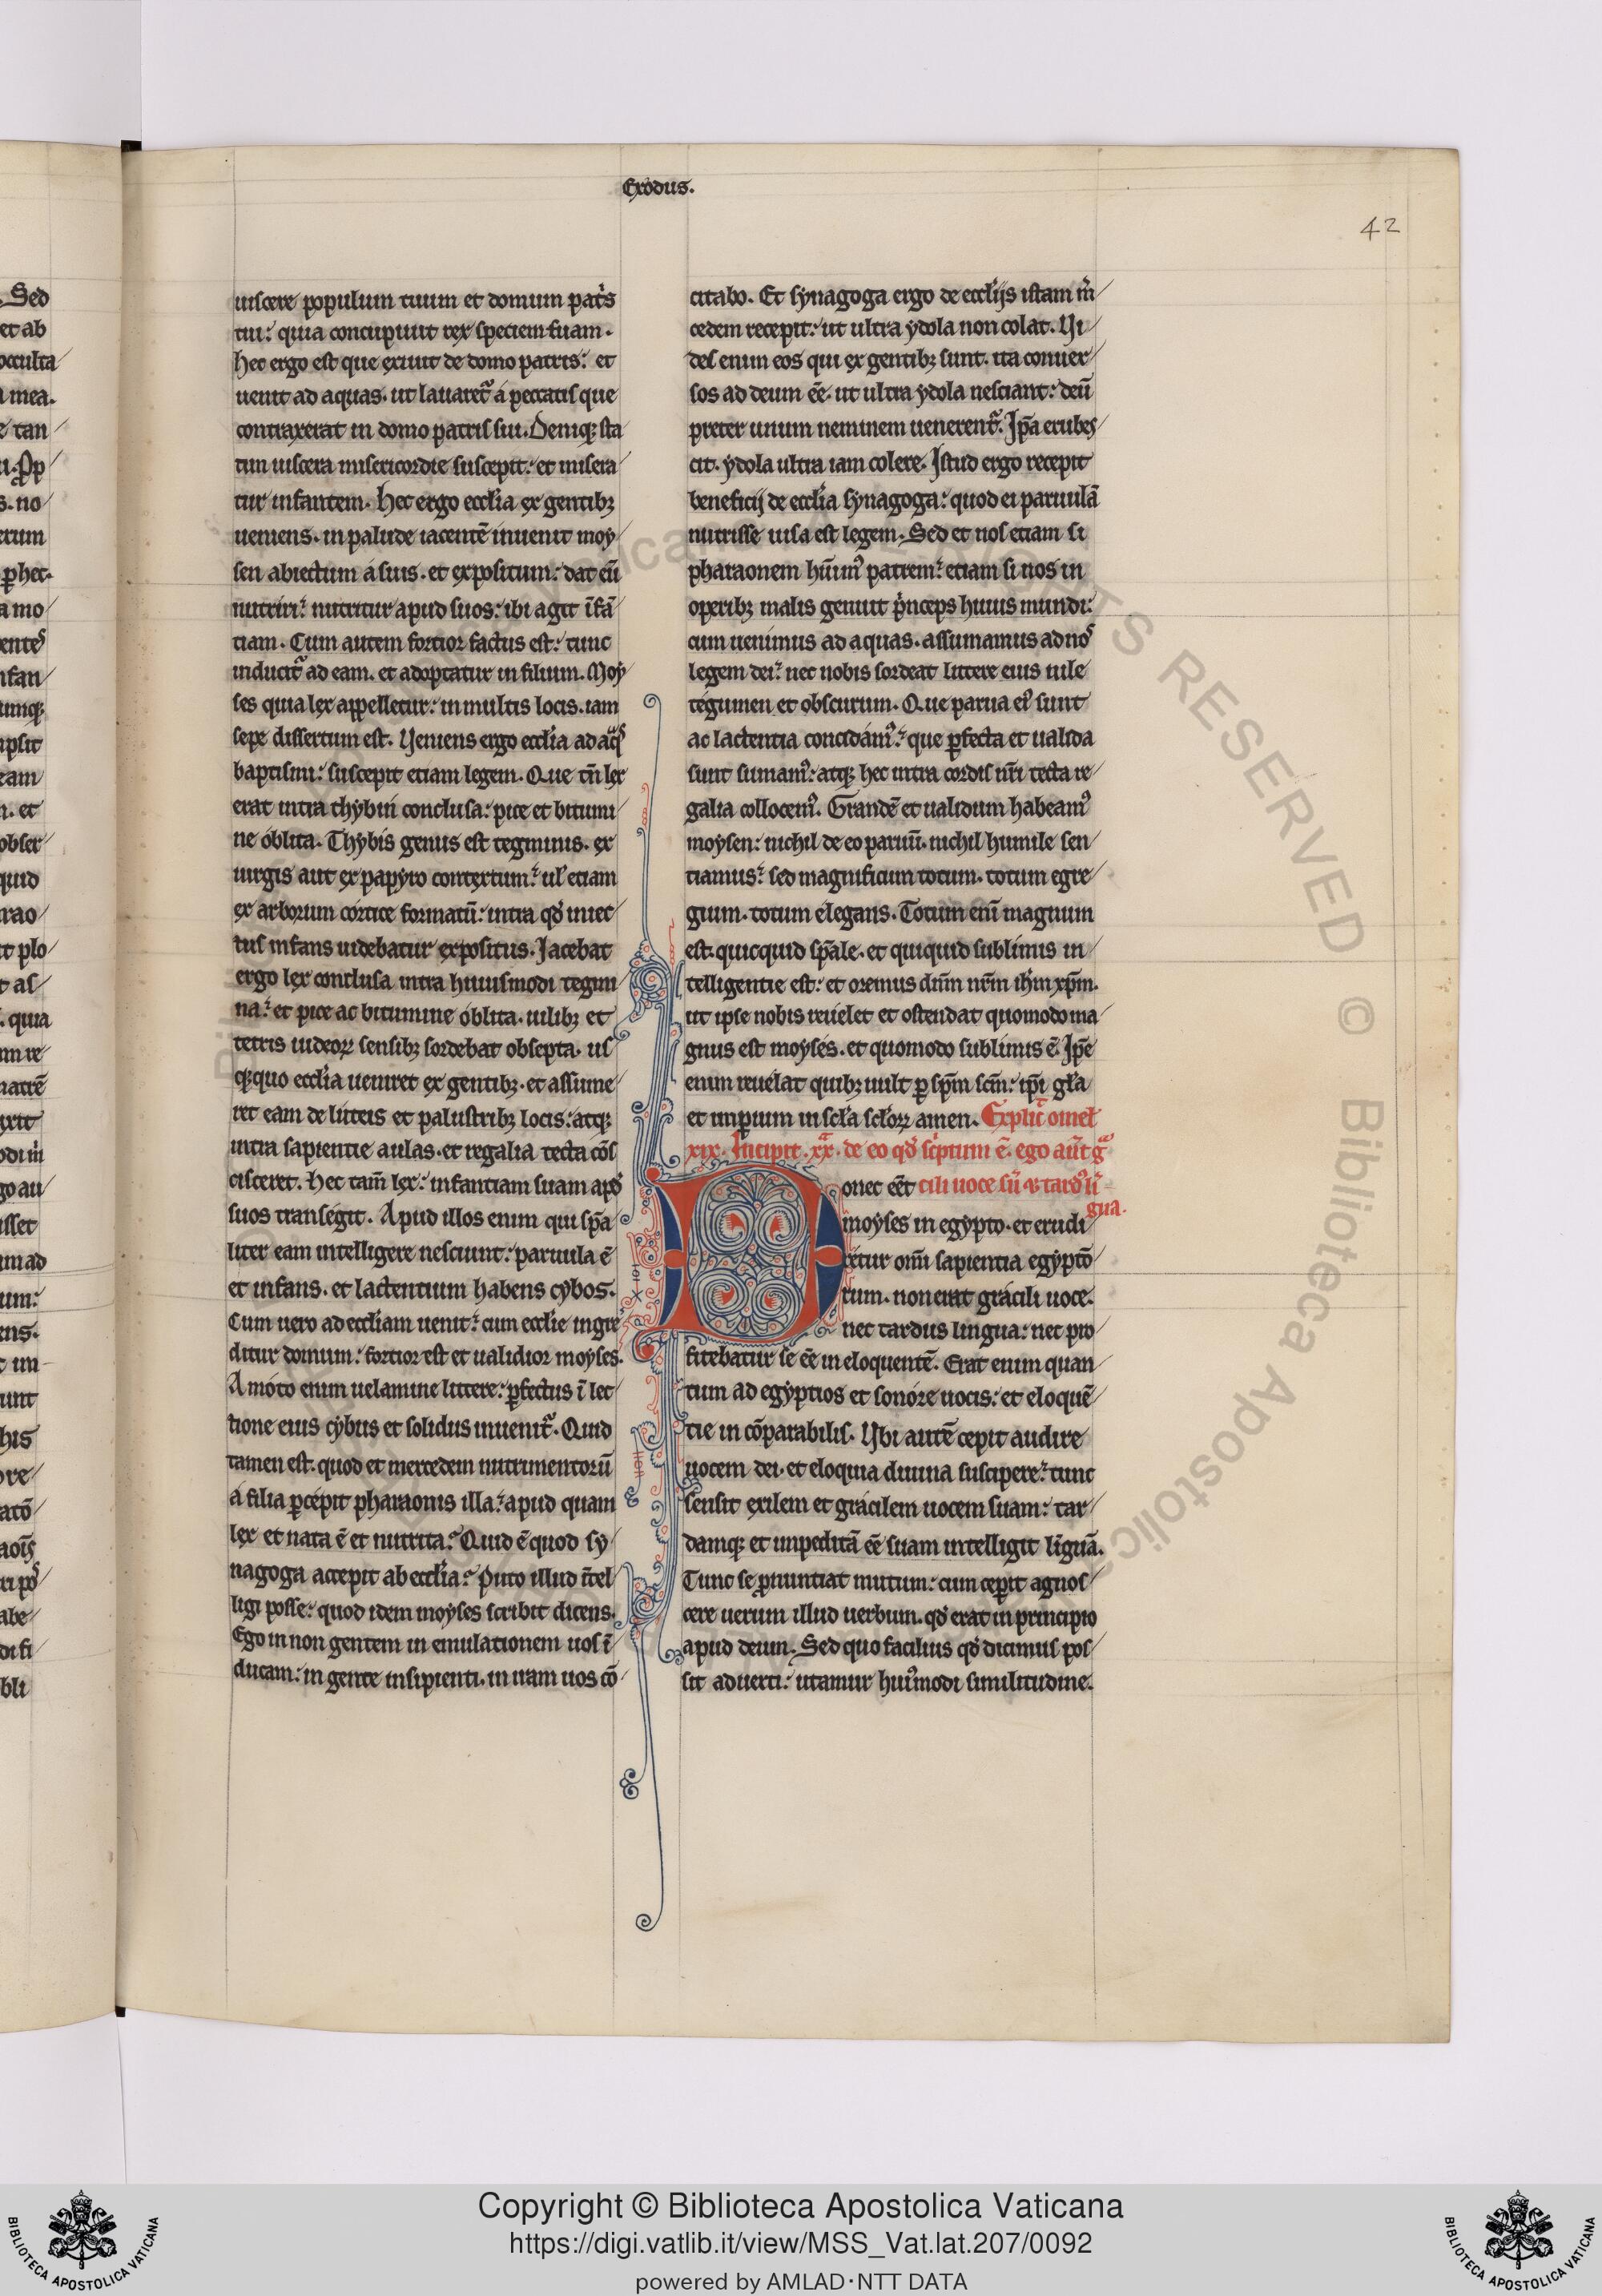 Exodus.
42
uiscere populum tuum et domum pat̾s
tui: quia concupiuit rex speciem tuam.
hec ergo est que exiuit de domo patris: et
uenit ad aquas. ut lauaret̾ a peccatis que
contraxerat in domo patris sui. Deniq; sta
tim uiscera misericordie suscepit: et misera
tur infantem. Hec ergo eccl̾ia ex gentib;
ueniens. in palude iacentē inuenit moy
sen abiectum a suis. et expositum: dat eū
nutriri: nutritur apud suos: ibi agit īfā
tiam. Cum autem fortior factus est: tunc
inducit̾ ad eam. et adoptatur in filium. Moy
ses quia lex appelletur: in multis locis. iam
sepe dissertum est. Ueniens ergo eccl̾ia ad aq̾s
baptismi: suscepit etiam legem. Que tn̄ lex
erat intra thybin conclusa: pice et bitumi
ne oblita. Thybis genus est tegminis. ex
uirgis aut ex papyro contextum: ul̾ etiam
ex arborum cortice formatū: intra qd̾ iniec
tus infans uidebatur expositus. Jacebat
ergo lex conclusa intra huiusmodi tegmi
na: et pice ac bitumine oblita. uilib; et
tetris iudeoꝝ sensib; sordebat obsepta. us
q;quo eccl̾ia ueniret ex gentib;. et assume
ret eam de luteis et palustrib; locis: atq;
intra sapientie aulas. et regalia tecta cōs
cisceret. Hec tam̄ lex: infantiam suam apd̾
suos transegit. Apud illos enim qui sp̄a
liter eam intelligere nesciunt: paruula ē
et infans. et lactentium habens cybos.
Cum uero ad eccl̾iam uenit: cum eccl̾ie ingre
ditur domum: fortior est et ualidior moyses.
Amoto enim uelamine littere: ꝑfectus ī lec
tione eius cybus et solidus inuenit̾. Quid
tamen est. quod et mercedem nutrimentorū
a filia ꝑcepit pharaonis illa: apud quam
lex et nata ē et nutrita: Quid ē quod sy
nagoga accepit ab eccl̾ia: Puto illud īt̄el
ligi posse: quod idem moyses scribit dicens.
Ego in non gentem in emulationem uos ī
ducam: in gente insipienti. in iram uos cō
citabo. Et synagoga ergo de eccl̾ijs istam m̾
cedem recepit: ut ultra ydola non colat. Ui
des enim eos qui ex gentib; sunt. ita conuer
sos ad deum eē. ut ultra ydola nesciant: deū
preter unum neminem uenerent̾. Ip̄a erubes
cit. ydola ultra iam colere. Istud ergo recepit
beneficij de eccl̾ia synagoga: quod ei paruulā
nutrisse uisa est legem. Sed et nos etiam si
pharaonem hūim̾ patrem: etiam si nos in
operib; malis genuit p̾nceps huius mundi:
cum uenimus ad aquas. assumamus ad nos
legem dei: nec nobis sordeat littere eius uile
tegumen et obscurum. Que parua ei̾ sunt
ac lactentia concidām̾: que ꝑfecta et ualida
sunt sumam̾: atq; hec intra cordis nr̄i tecta re
galia collocem̾. Grandē et ualidum habeam̾
moysen: nichil de eo paruū. nichil humile sen
tiamus: sed magnificum totum. totum egre
gium. totum elegans. Totum eni̅ magnum
est. quicquid sp̄ale. et quiquid sublimis in
telligentie est: et oremus dn̄m nr̄m ih̄m xp̄m.
ut ipse nobis reuelet et ostendat quomodo ma
gnus est moyses. et quomodo sublimis ē. Ip̄e
enim reuelat quib; uult ꝑ sp̄m scm̄: ip̄i gl̾a
et imꝑium in scl̾a scl̾oꝝ amen. Explic̄ omel̾
xix. Incipit .xx̾. de eo qd̾ sc̾ptum ē. ego aūt g̾
Donec eēt cili uoce sū & tard̾ li̅
gua.
moyses in egypto. et erudi
retur om̄i sapientia egyptō
rum. non erat gracili uoce.
nec tardus lingua: nec pro
fitebatur se eē in eloquentē. Erat enim quan
tum ad egyptios et sonore uocis: et eloquē
tie in cōparabilis. Ubi autē cepit audire
uocem dei. et eloquia diuina suscipere: tunc
sensit exilem et gracilem uocem suam: tar
damq; et impeditā eē suam intelligit li̅guā.
Tunc se ꝓnuntiat mutum: cum cepit agnos
cere uerum illud uerbum. qd̾ erat in principio
apud deum. Sed quo facilius qd̾ dicimus pos
sit aduerti: utamur hui̾modi similitudine.
Copyright © Biblioteca Apostolica Vaticana
https://digi.vatlib.it/view/MSS_Vat.lat.207/0092
powered by AMLAD·NTT DATA